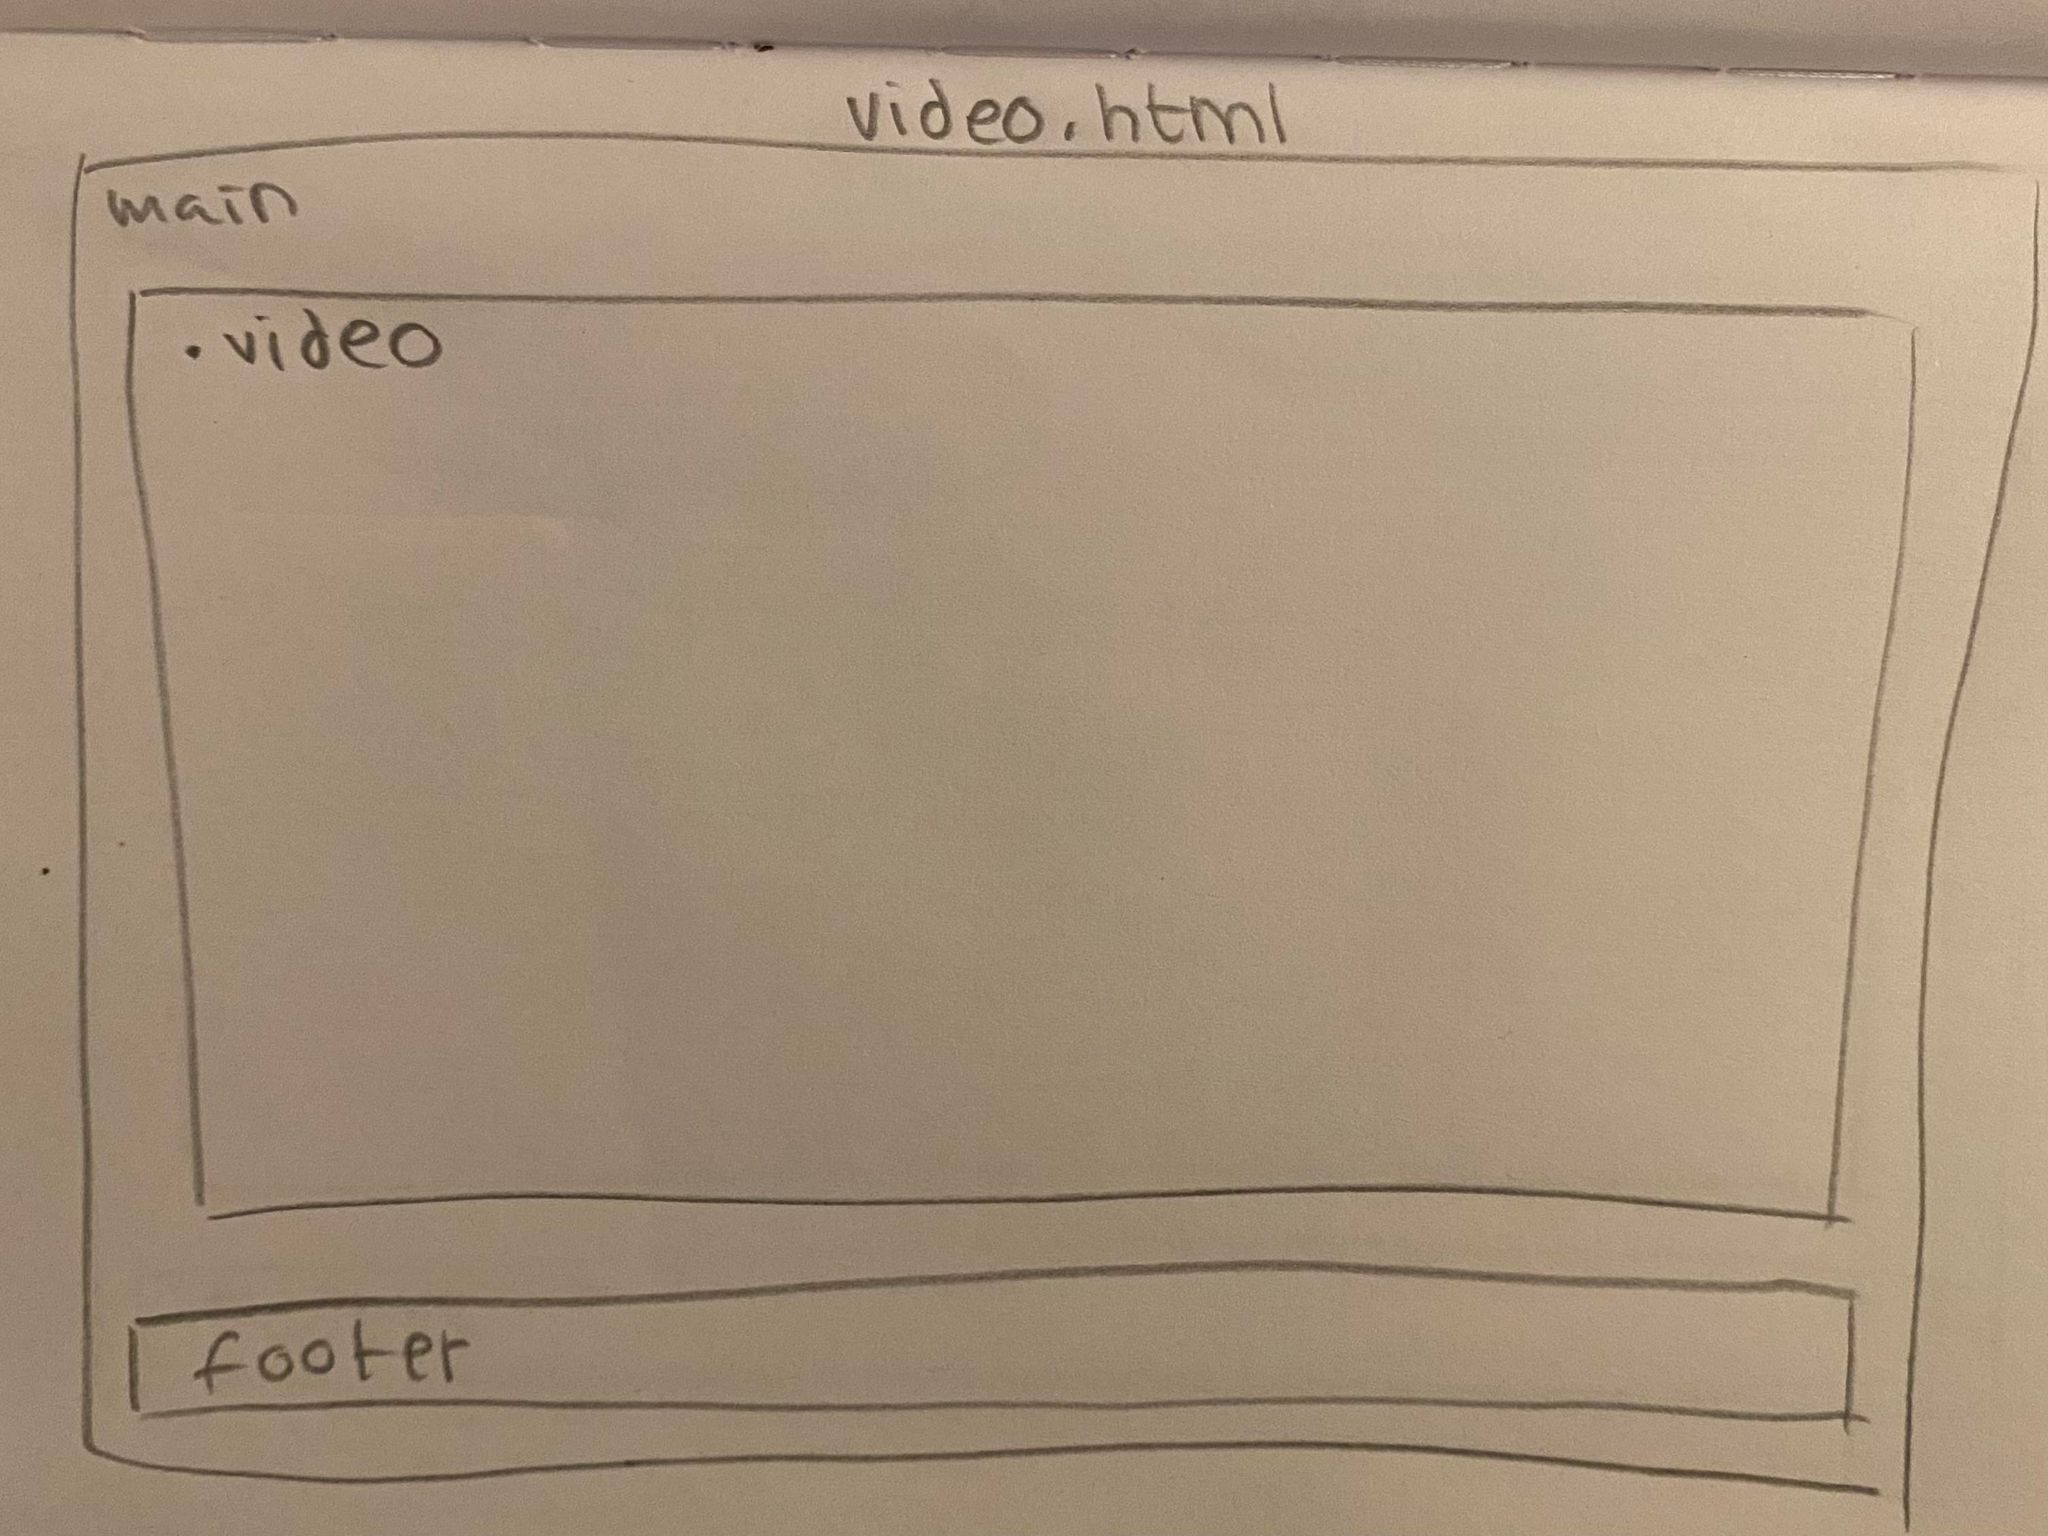 video.html
main
.video
footer